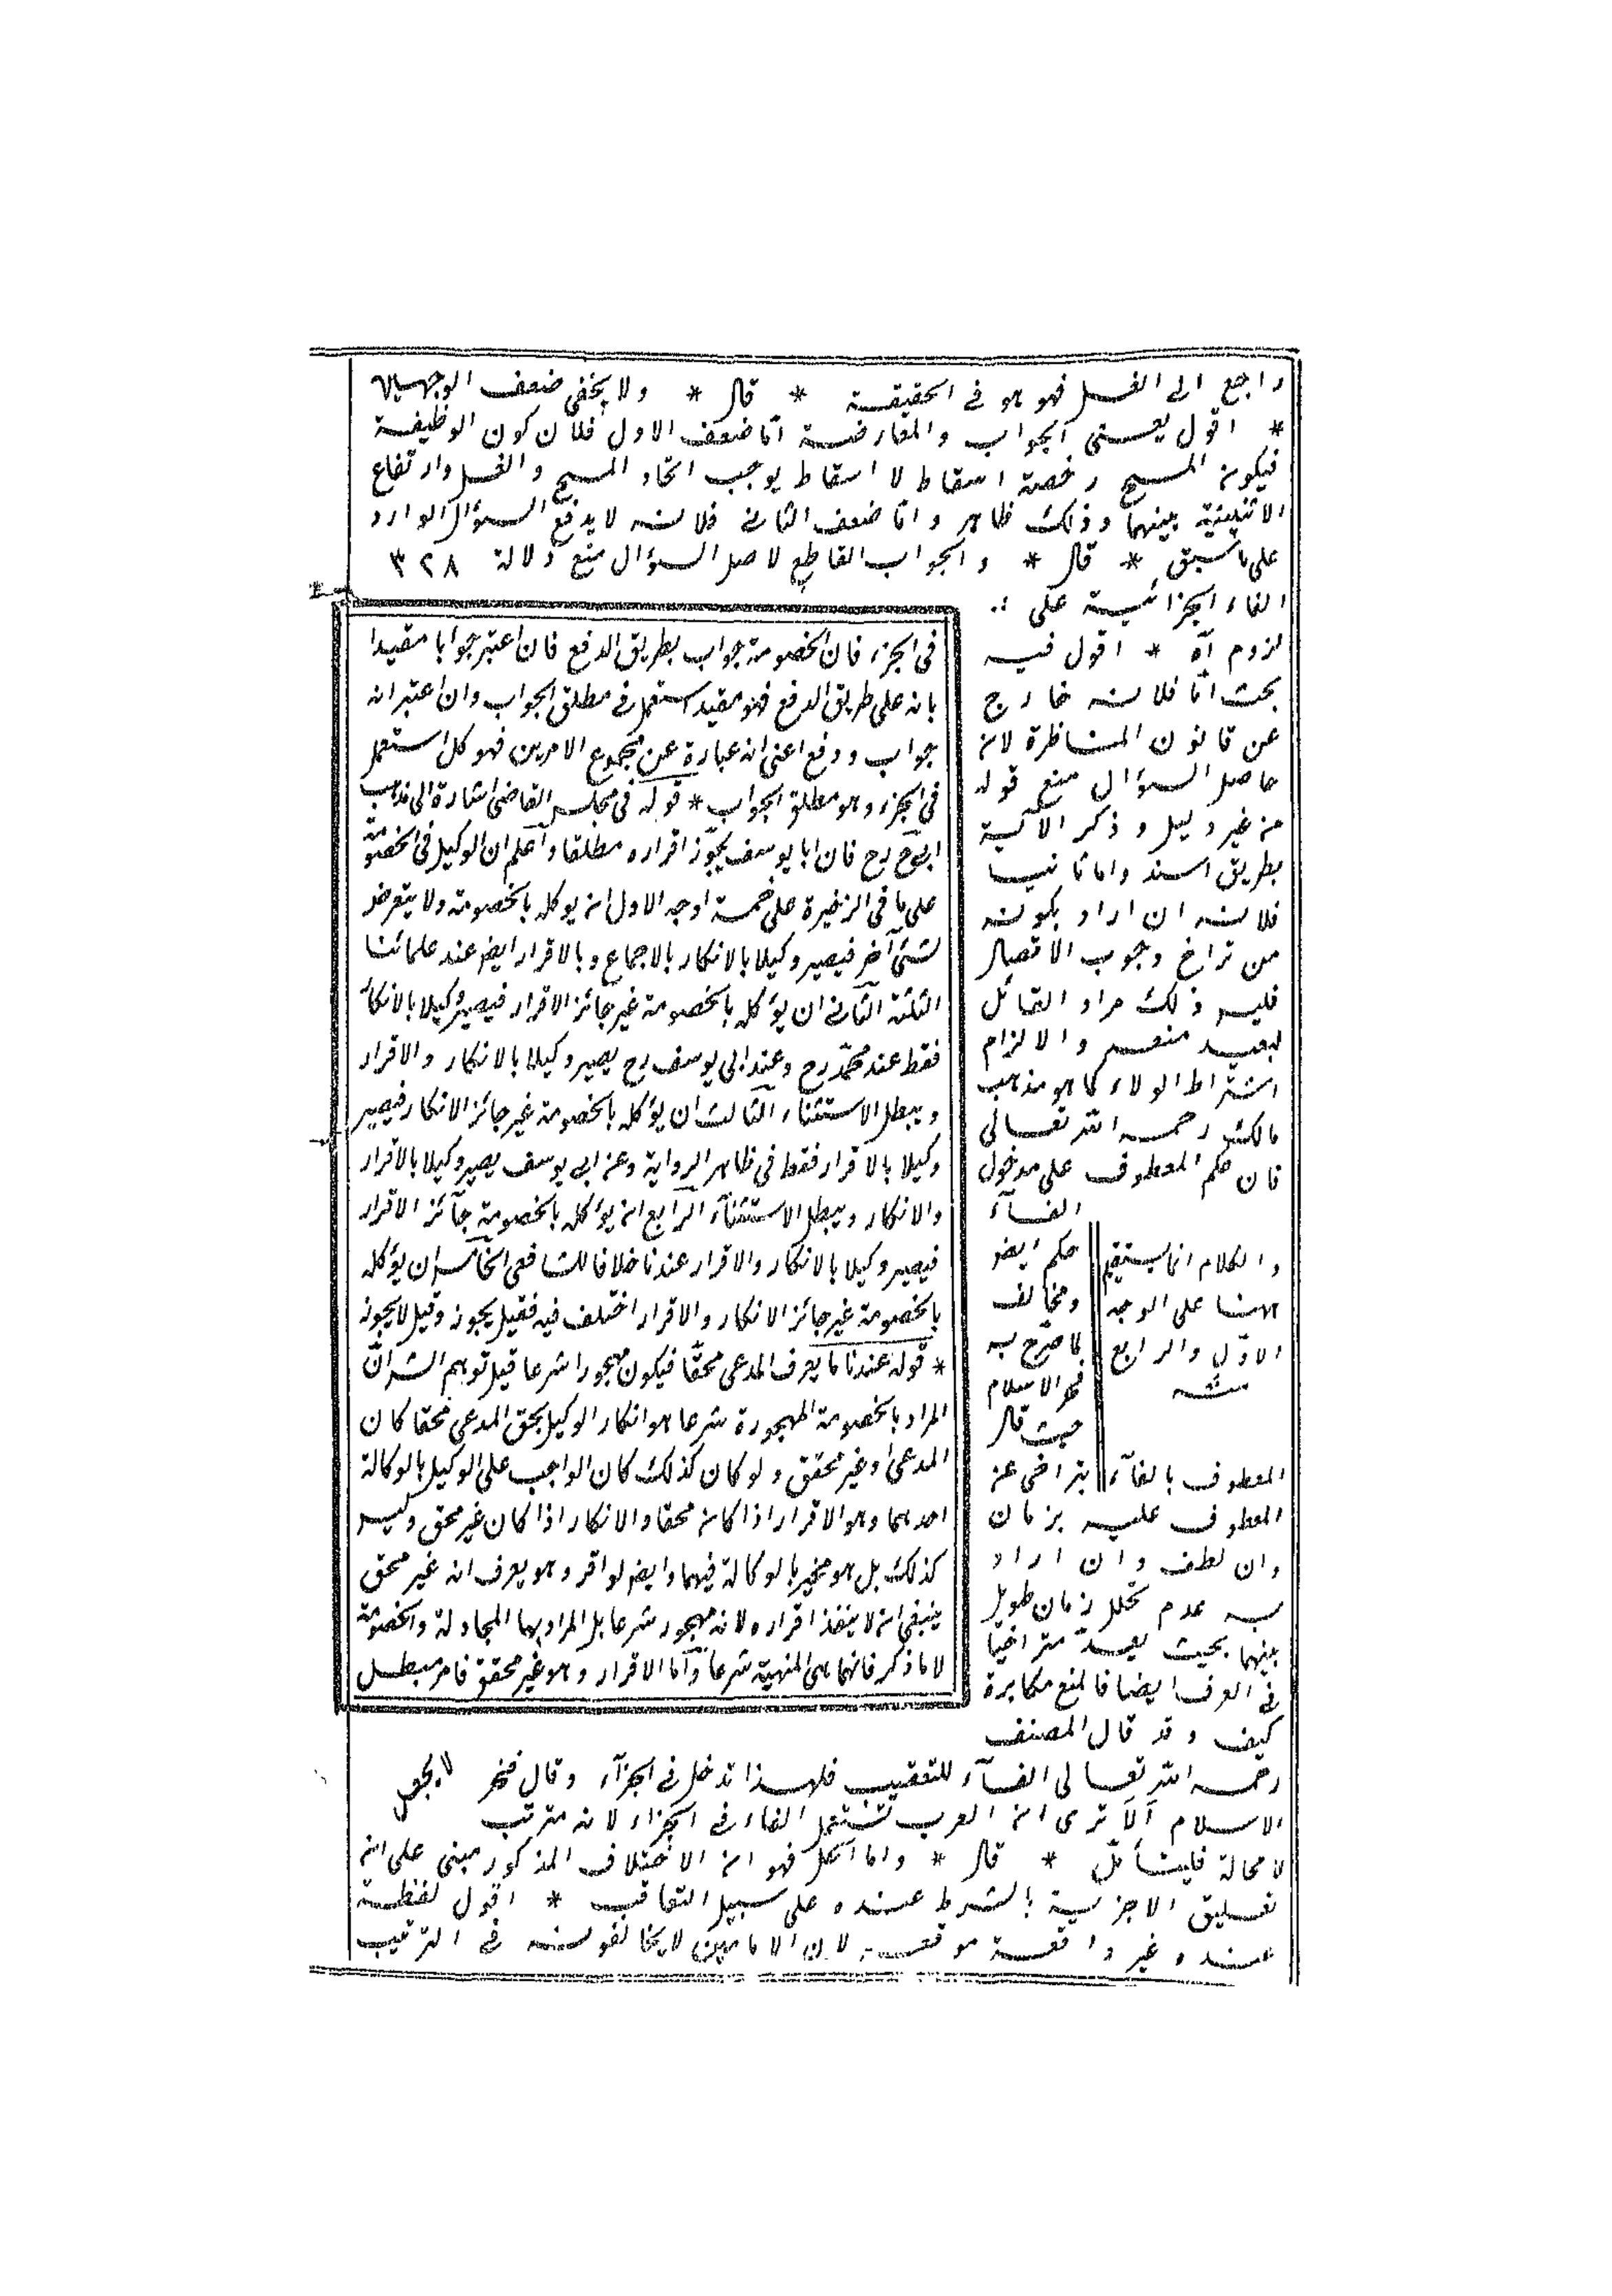 راجع الى الغسل فهو هو فى الحقيقة * قال * ولا يخفى ضعف الوجهين
* اقول يعنى الجواب والمعارضة امّا ضعف الاول فلان كون الوظيفة
فيكون المسح رخصة اسقاط لا اسقاط يوجب اتحاد المسح والغسل وارتفاع
الاثنينية بينهما وذلك ظاهر وامّا ضعف الثانى فلانه لا يدفع السؤال الوارد
على ما سبق * قال * والجواب القاطع لاصل السؤال منع دلالة ٣٢٨
الفاء الجزائية على
لزوم آه * اقول فيه
بحث امّا فلانه خارج
عن قانون المناظرة لان
حاصل السؤال منع قوله
من غير دليل وذكر الآية
بطريق السند واما ثانيا
فلانه ان اراد بكونه
من تراخ وجوب الاتصال
فليس ذلك مراد القائل
لبعيد منعه والا لزام
اشتراط الولاء كما هو مذهب
مالك رحمه الله تعالى
فان حكم المعطوف على مدخول
الفاء
حكم ايض
ومخالف
لما صرّح به
فخر الاسلام
حيث قال
المعطوف بالفاء يتراخى عن
المعطوف عليه بزمان
وان لطف وان اراد
به عدم تخلل زمان طويل
بينهما بحيث يعدّ متراخيا
فى العرف ايضا فالمنع مكابرة
كيف وقد قال المصنف
رحمه الله تعالى الفاء للتعقيب فلهذا تدخل فى الجزاء وقال فخر
الاسلام ألا ترى ان العرب تستعمل الفاء فى الجزاء لانه مترتب
لا محالة فليتأمّل * قال * واما الكل فهو ان الاختلاف المذكور مبنى على ان
تعليق الاجزية بالشرط عنده على سبيل التعاقب * اقول لفظة
عنده غير واقعة موقعه لان الامامين لا يخالفونه فى الترتيب
والكلام انما يستقيم
ههنا على الوجه
الاوّل والرابع
منه
فى الجزء فان الخصومة جواب بطريق الدفع فان اعتبر جوابا مقيدا
بانه على طريق الدفع فهو مقيد استعمل فى مطلق الجواب وان اعتبر انه
جواب ودفع اعنى انه عبارة عن مجموع الامرين فهو كل استعمل
فى الجزء وهو مطلق الجواب * قوله فى مجلس القاضى اشارة الى مذهب
ابى ح رح فان ابا يوسف يجوّز اقراره مطلقا واعلم ان الوكيل فى الخصومة
على ما فى الذخيرة على خمسة اوجه الاول ان يوكله بالخصومة ولا يتعرض
لشئ آخر فيصير وكيلا بالانكار بالاجماع وبالاقرار ايض عند علمائنا
الثلثة الثانى ان يؤكله بالخصومة غير جائز الاقرار فيصير وكيلا بالانكار
فقط عند محمّد رح وعند ابى يوسف رح يصير وكيلا بالانكار والاقرار
ويبطل الاستثناء الثالث ان يؤكله بالخصومة غير جائز الانكار فيصير
وكيلا بالاقرار فقط فى ظاهر الرواية وعن ابى يوسف يصير وكيلا بالاقرار
والانكار ويبطل الاستثناء الرابع ان يؤكله بالخصومة جائز الاقرار
فيصير وكيلا بالانكار والاقرار عندنا خلافا للشافعى الخامس ان يؤكله
بالخصومة غير جائز الانكار والاقرار اختلف فيه فقيل يجوز وقيل لا يجوز
* قوله عندنا ما يعرف المدعى محقّا فيكون مهجورا شرعا قيل توهم الش انّ
المراد بالخصومة المهجورة شرعا هو انكار الوكيل بحق المدعى محقا كان
المدعى او غير محقق ولو كان كذلك كان الواجب على الوكيل بالوكالة
احدهما وهو الاقرار اذا كان محقا والانكار اذا كان غير محق وليس
كذلك بل هو مخير بالوكالة فيهما وايض لو اقر وهو يعرف انه غير محق
ينبغى ان لا ينفذ اقراره لانه مهجور شرعا بل المراد بها المجادلة والخصومة
لا ما ذكر فانهما هى المنهية شرعا وأما الاقرار وهو غير محقق فامر مبطل
لا بجعل